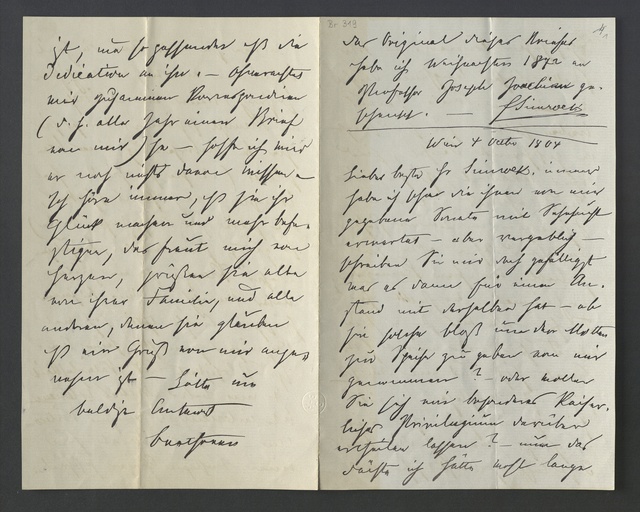 ist, um so passender ist die
Dedication an ihn. — Ohnerachtet
wir zusammen Korrespondiren
(d. h. alle Jahr einen Brief
von mir) so — hoffe ich wird
er noch nichts davon wissen —
Ich höre immer, daß sie ihr
Glück machen und mehr befe-
stigen, das freut mich von
herzen, grüßen sie alle
von ihrer Familie, und alle
anderen, denen sie glauben
daß ein Gruß von mir ange-
nehm ist — bitte um
baldige Antwort
Beethoven
Br 313
das Original dieses Briefes
habe ich Weihnachten 1872 an
Professor Joseph Joachim ge-
schenkt. — FSimrock
Wien 4 Octbr 1804
Lieber bester Hr Simrock, immer
habe ich schon die ihnen von mir
gegebene Sonate mit Sehnsucht
erwartet — aber vergeblich —
schreiben Sie mir doch gefälligst
was es denn für einen An-
stand mit derselben hat — ob
sie solche bloß um den Motten
zur Speise zu geben von mir
genommen? — oder wollen
Sie sich ein besonderes Kaiser-
liches Privilegium darüber
ertheilen lassen? — nun das
dächte ich hätte wohl lange